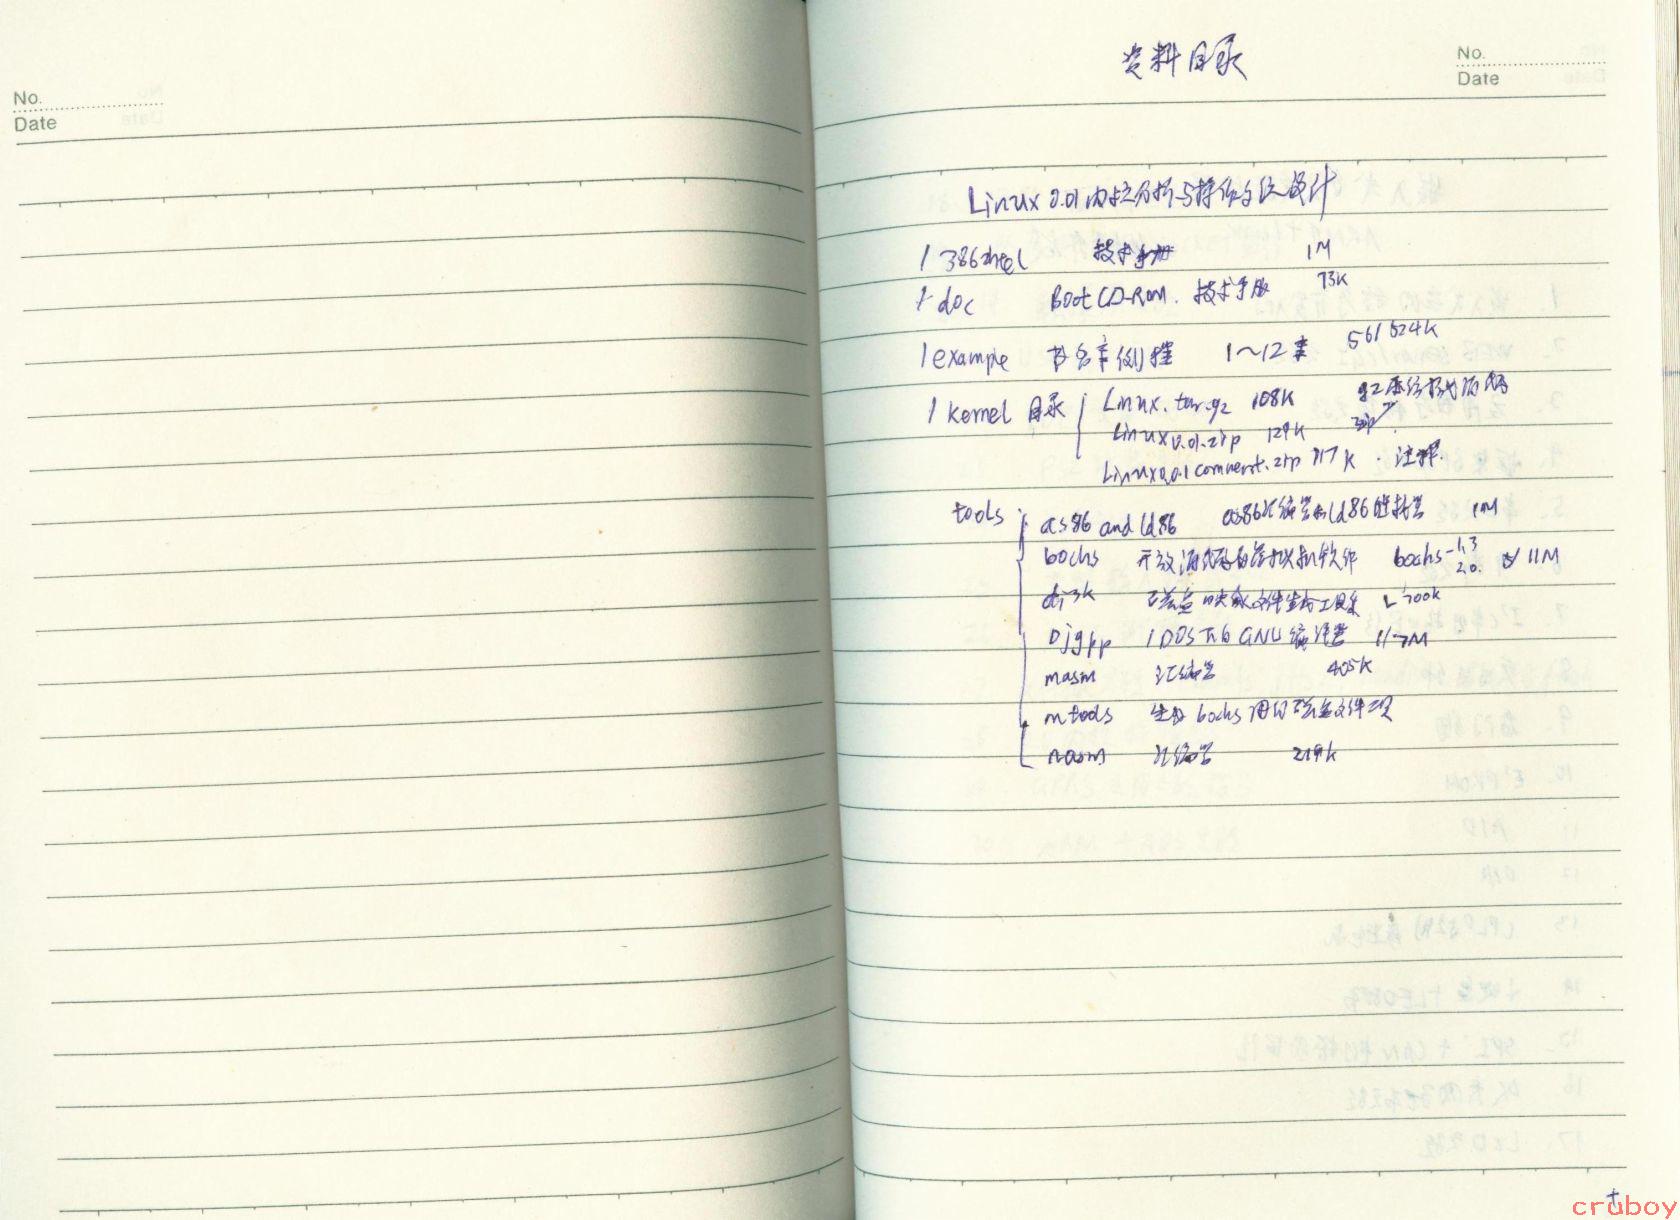 No.
Date
资料目录
No.
Date
Linux 0.01内核分析与操作系统设计
/ 386intel 技术手册 1M
/ doc Boot CD-ROM. 技术手册 73K
/ example 书各章例程 1～12章 561 524K
/ kernel 目录 Linux.tar.gz 108K gz
Linux0.01.zip 129K zip
Linux0.01comment.zip 717K. 注释.
tools as86 and ld86 as86汇编器和ld86链接器 1M
bochs 开放源代码的虚拟机软件 bochs-1.3 2.0. 11M
disk 磁盘映象文件生成工具
Djgpp / DOS下的GNU编译器
masm 汇编器 405K
mtools 生成bochs用的磁盘文件工具
nasm 汇编器 219K
cruboy